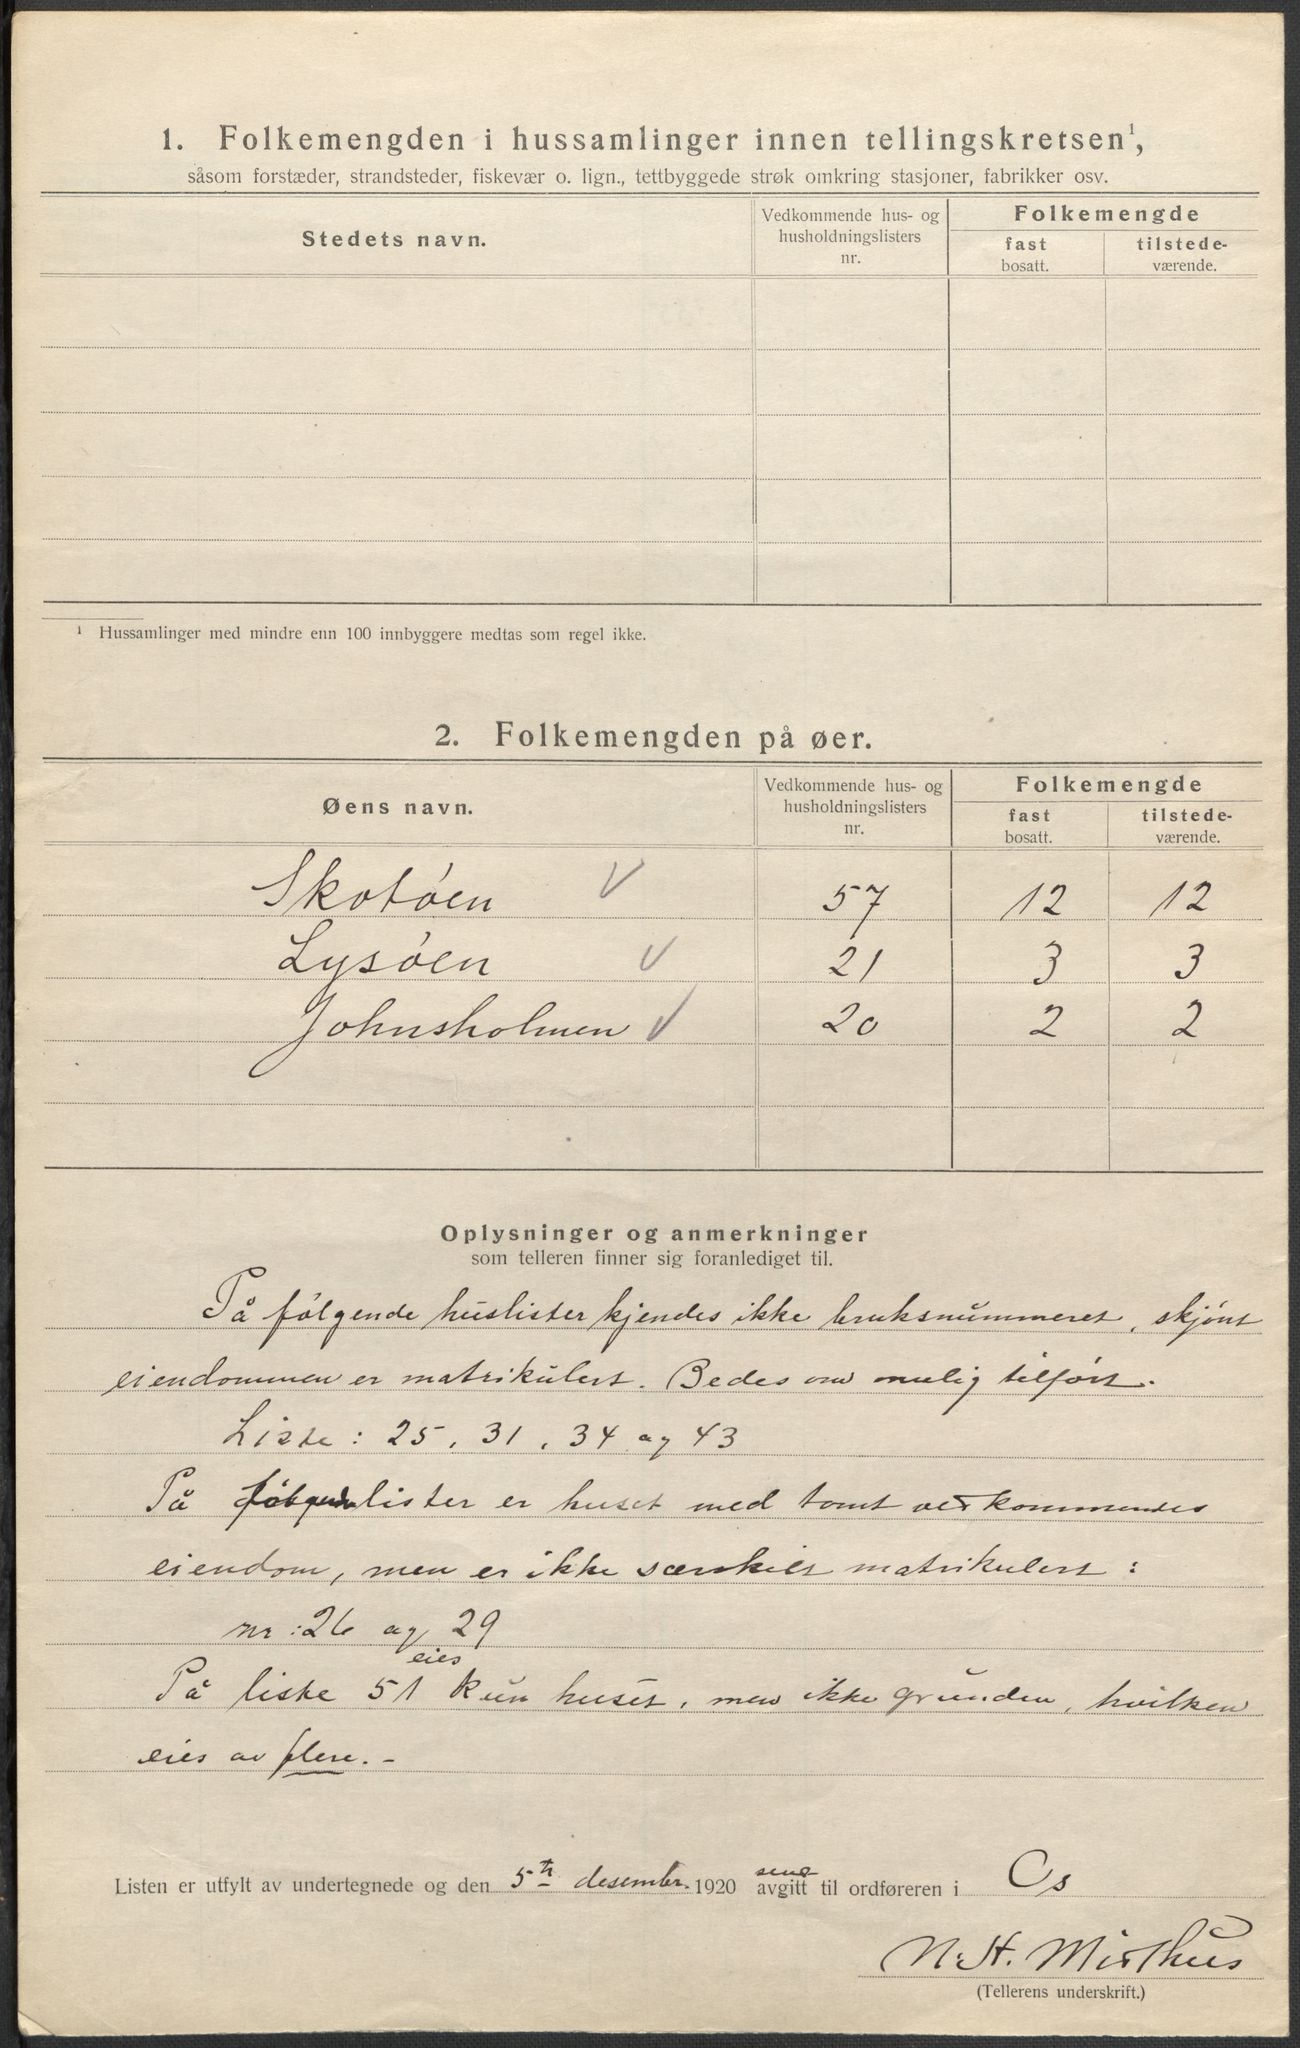 1. Folkemengden i hussamlinger innen tellingskretsen¹,
såsom forstæder, strandsteder, fiskevær o. lign., tettbyggede strøk omkring stasjoner, fabrikker osv.
Stedets navn.
Vedkommende hus- og
husholdningslisters
nr.
Folkemengde
fast
bosatt.
tilstede-
værende.
¹ Hussamlinger med mindre enn 100 innbyggere medtas som regel ikke.
2. Folkemengden på øer.
Øens navn.
Vedkommende hus- og
husholdningslisters
nr.
Folkemengde
fast
bosatt.
tilstede-
værende.
Skotøen 57 12 12
Lysøen 21 3 3
Johnsholmen 20 2 2
Oplysninger og anmerkninger
som telleren finner sig foranlediget til.
På følgende huslister kjendes ikke bruksnummeret, skjønt
eiendommen er matrikulert. Bedes om mulig tilført.
Liste: 25, 31, 34 og 43
På følgende lister er huset med tomt vedkommendes
eiendom, men er ikke særskilt matrikulert:
nr: 26 og 29
eies
På liste 51 kun huset, men ikke grunden, hvilken
eies av flere. -
Listen er utfylt av undertegnede og den 5te desembr. 1920 avgitt til ordføreren i Os
N. H.
(Tellerens underskrift.)